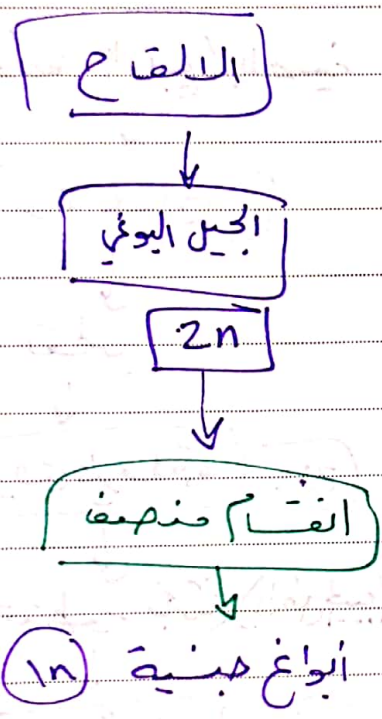 الالقاح
الجيل البوغي
2n
انقسام منصف
أبواغ جنسية 1n